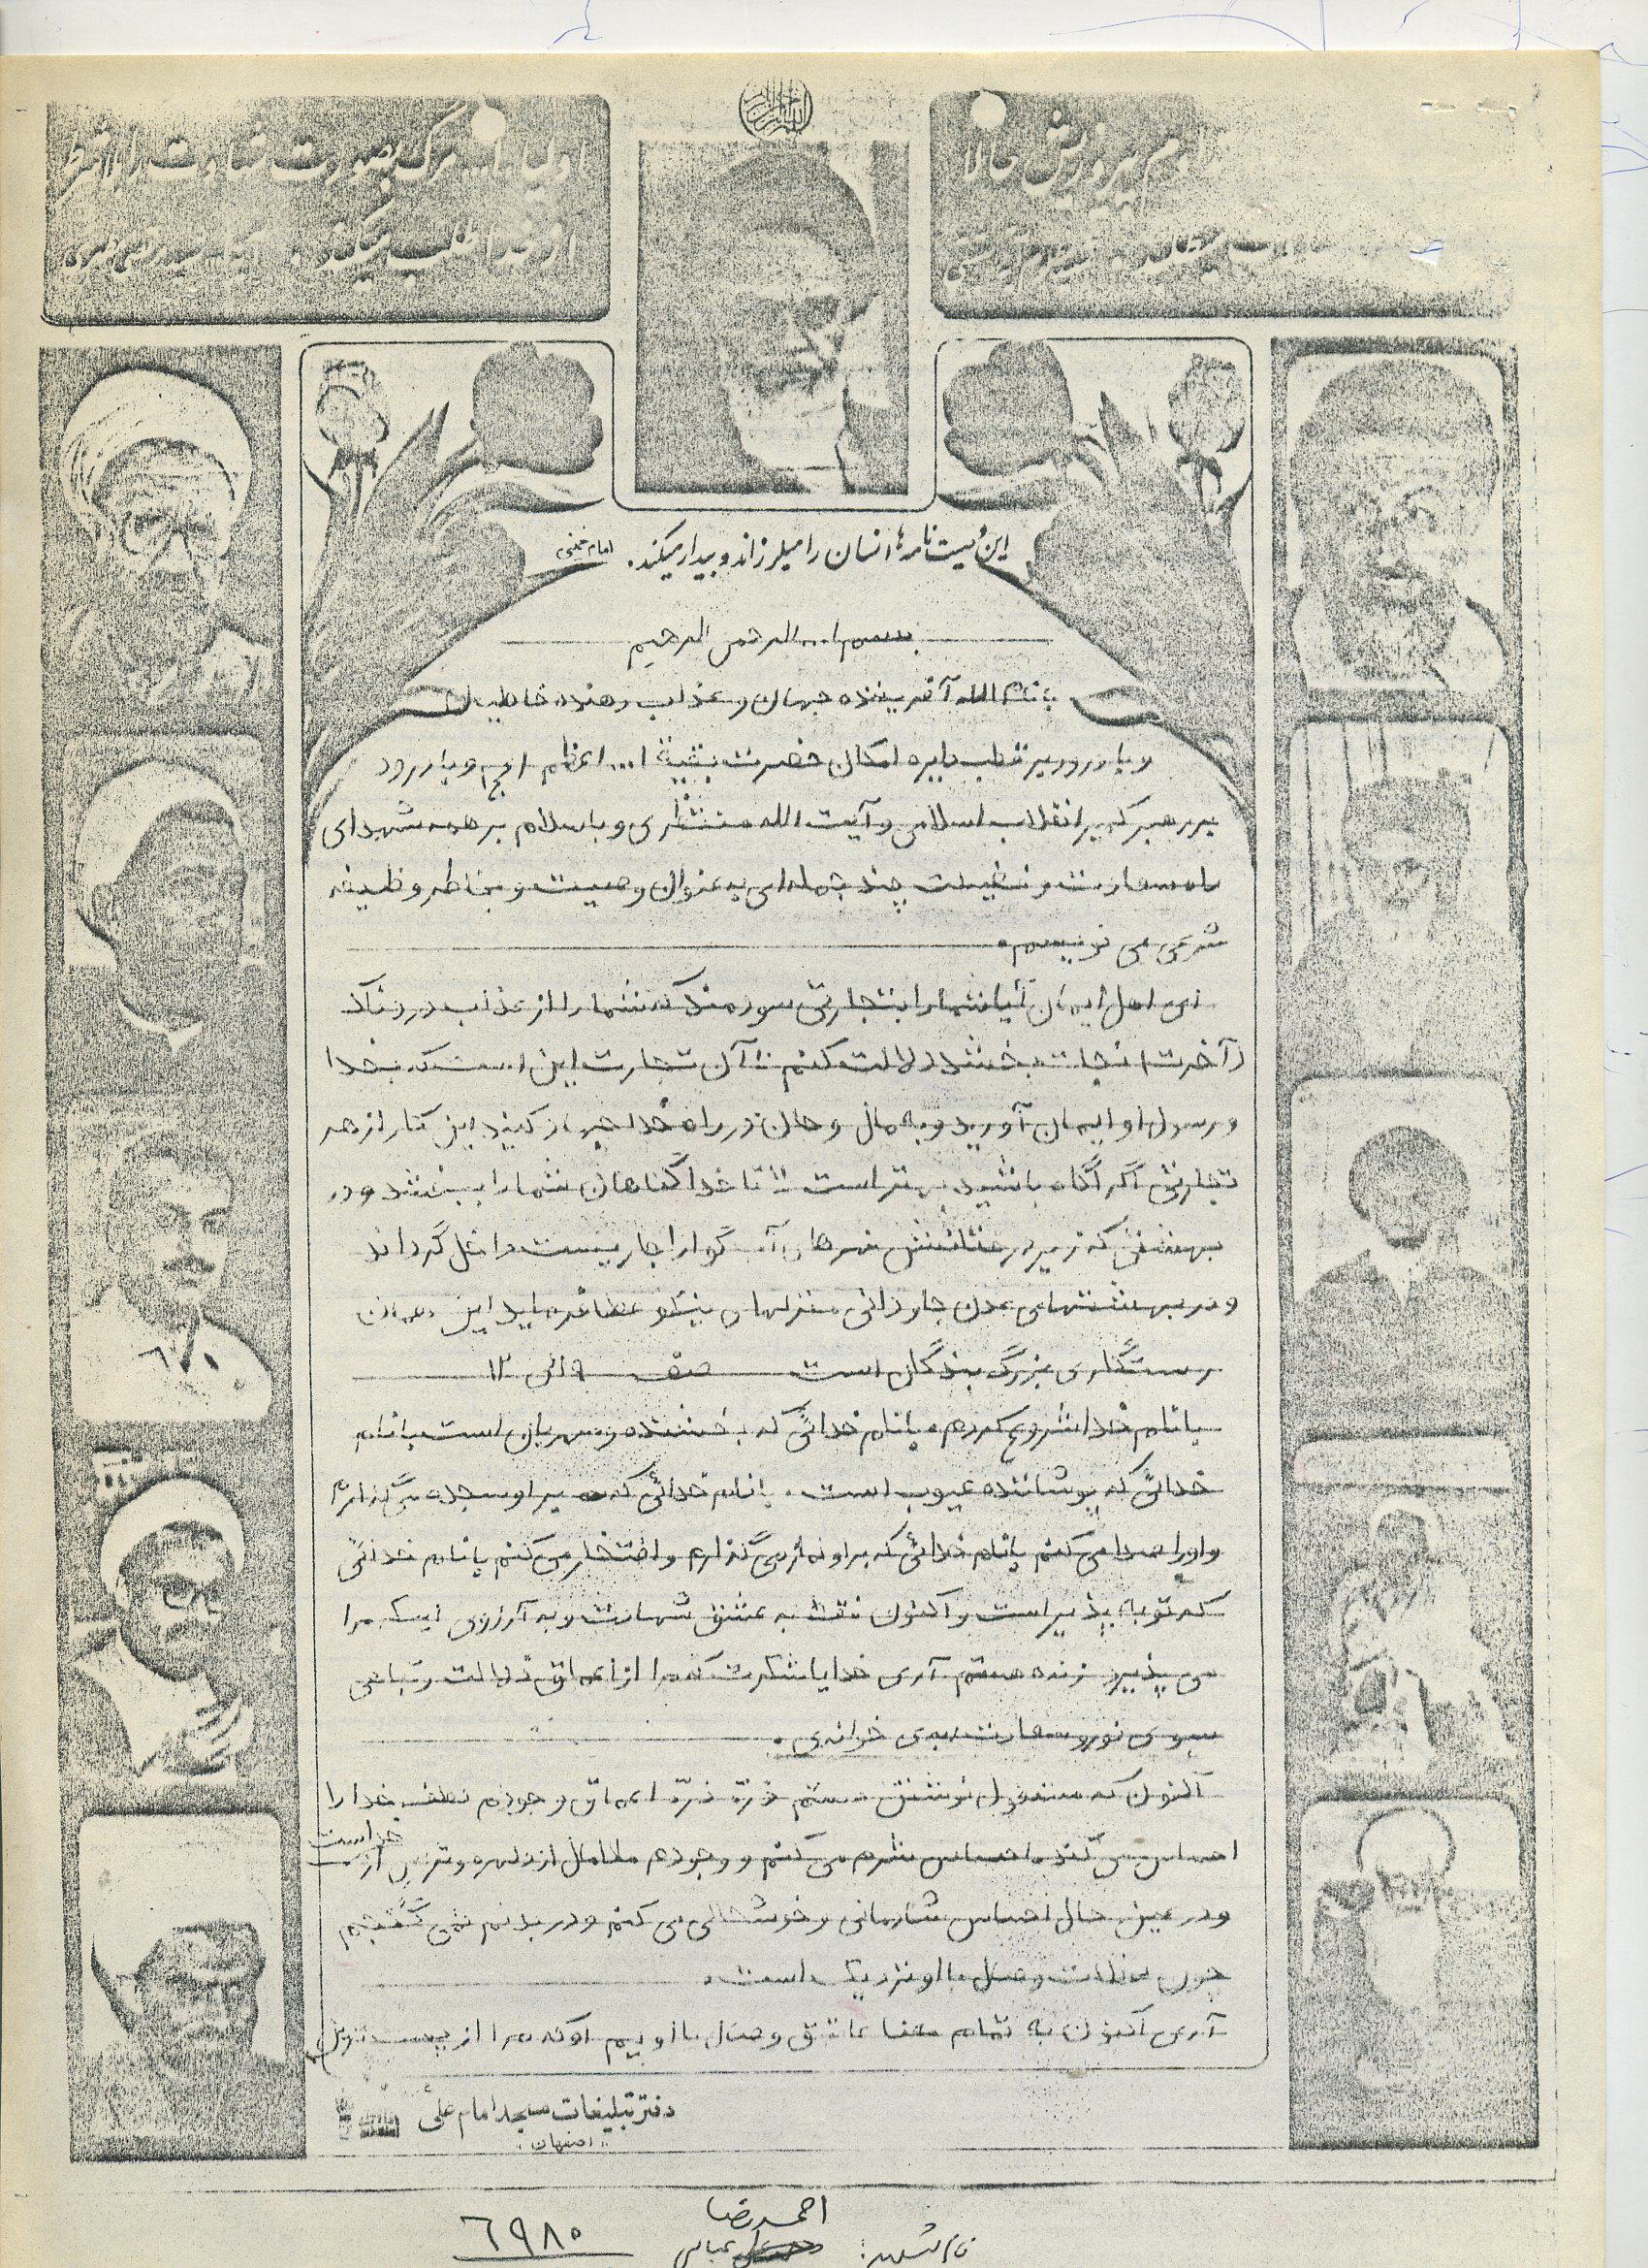 اولیاء ا... مرگ بصورت شهادت را
از خدا طلب میکنند.
این وصیت نامه ها انسان را میلرزاند و بیدار میکند. امام خمینی
بسم ا... الرحمن الرحیم
بنام الله آفریننده جهان و عذاب دهنده خاطیان
و با درود بر قطب دایره امکان حضرت بقیة ا... اعظم (عج) و با درود
بر رهبر کبیر انقلاب اسلامی و آیت الله منتظری و با سلام بر همه شهدای
راه سعادت و فضیلت چند جمله ای به عنوان وصیت و بخاطر وظیفه
شرعی می نویسم.
ای اهل ایمان آیا شما را بتجارتی سودمند که شما را از عذاب دردناک
(آخرت) نجات بخشد دلالت کنم * آن تجارت این است که بخدا
و رسول او ایمان آورید و به مال و جان در راه خدا جهاد کنید این کار از هر
تجارتی اگر آگاه باشید بهتر است * تا خدا گناهان شما را ببخشد و در
بهشتی که زیر درختانش نهرهای آب گوارا جاریست داخل گرداند
و در بهشتهای عدن جاودانی منزلهای نیکو عطا فرماید این همان
رستگاری بزرگ بندگان است صف ۹ الی ۱۲
با نام خدا شروع کردم، با نام خدائی که بخشنده و مهربان است با نام
خدائی که پوشاننده عیوب است. با نام خدائی که بر او سجده می گذارم
و او را صدا می کنم با نام خدائی که بر او نماز می گذارم و افتخار می کنم با نام خدائی
که توبه پذیر است و اکنون فقط به عشق شهادت و به آرزوی اینکه مرا
می پذیرد زنده هستم آری خدایا شکرت که مرا از اعماق ذلالت و تباهی
بسوی نور و سعادت می خوانی.
اکنون که مشغول نوشتن هستم ذرّه ذرّه اعماق وجودم لطف خدا را
احساس می کند، احساس شرم می کنم و وجودم مالامال از دلهره و ترس از خداست
و در عین حال احساس شادمانی و خوشحالی می کنم و در بدنم نمی گنجم
چون ملاقات و وصل با او نزدیک است.
آری اکنون به تمام معنا عاشق وصال با اویم او که مرا از پست ترین
دفتر تبلیغات مسجد امام علی
اصفهان
احمدرضا
نام شهید: عباسی
۶۹۸۰